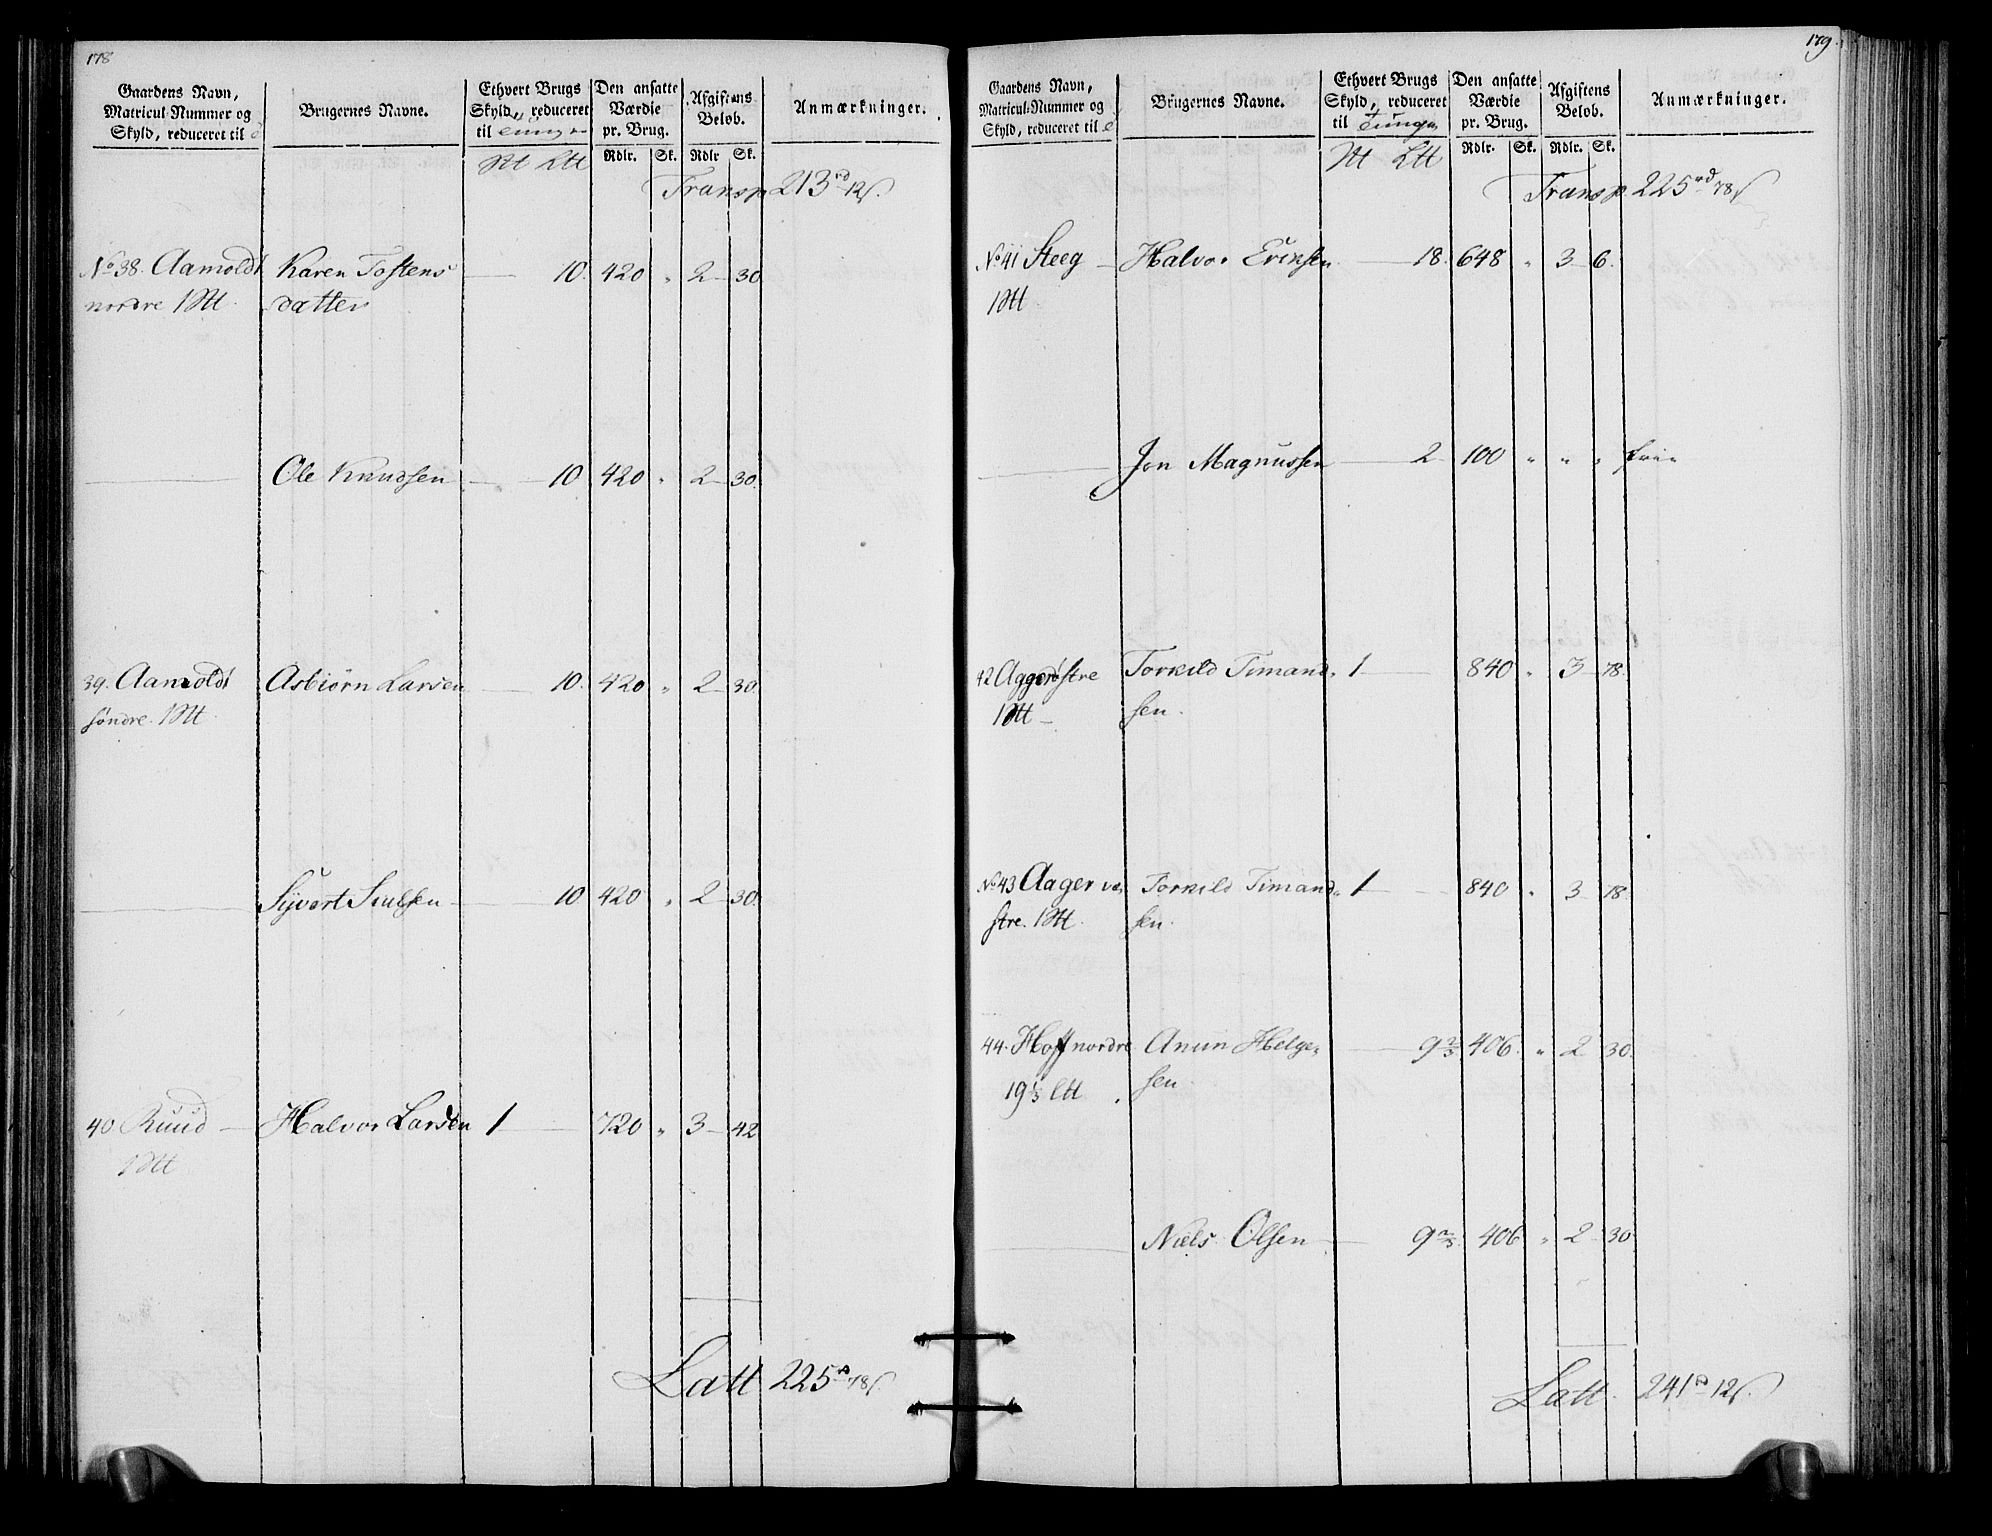 178
Gaardens Navn,
Matricul-Nummer og
Skyld, reduceret til
Brugernes Navne.
Ethvert Brugs
Skyld, reduceret
til Tunger
Den ansatte
Værdie
pr. Brug.
Afgiftens
Beløb.
Anmærkninger.
Rdlr. Sk. Rdlr Sk.
Transp. 213 rd 12 s.
No 38. Aamoldt Karen Tostens 10. 420 " 2 30
nordre datter
Ole Knudsen 10 420 " 2 30.
39. Aamoldt Asbiørn Larsen 10. 420 " 2 30.
søndre.
Syvert 10 420 " 2 30.
40 Ruud Halvor Larsen 1 720 " 3 42
Latt 225 78 s.
179.
Gaardens Navn,
Matricul-Nummer og
Skyld, reduceret til
Brugernes Navne.
Ethvert Brugs
Skyld, reduceret
til Tunger
Den ansatte
Værdie
pr. Brug.
Afgiftens
Beløb.
Anmærkninger.
Rdlr. Sk. Rdlr. Sk.
Transp. 225 rd 78 s
No 41 Steeg Halvor Evensen 18. 648 " 3 6.
Jon Magnussen 2 100 " " " frie
42 Agger østre Torkild Timand- 1 840 " 3 78.
sen.
No 43 Aager ve- Torkild Timand- 1 840 " 3 78.
stre. sen.
44. Hoff nordre Anun Helge- 9 2/3 406. " 2 30.
19 1/3 sen.
Niels Olsen 9 2/3 406 " 2 30
Latt. 241 12 s.